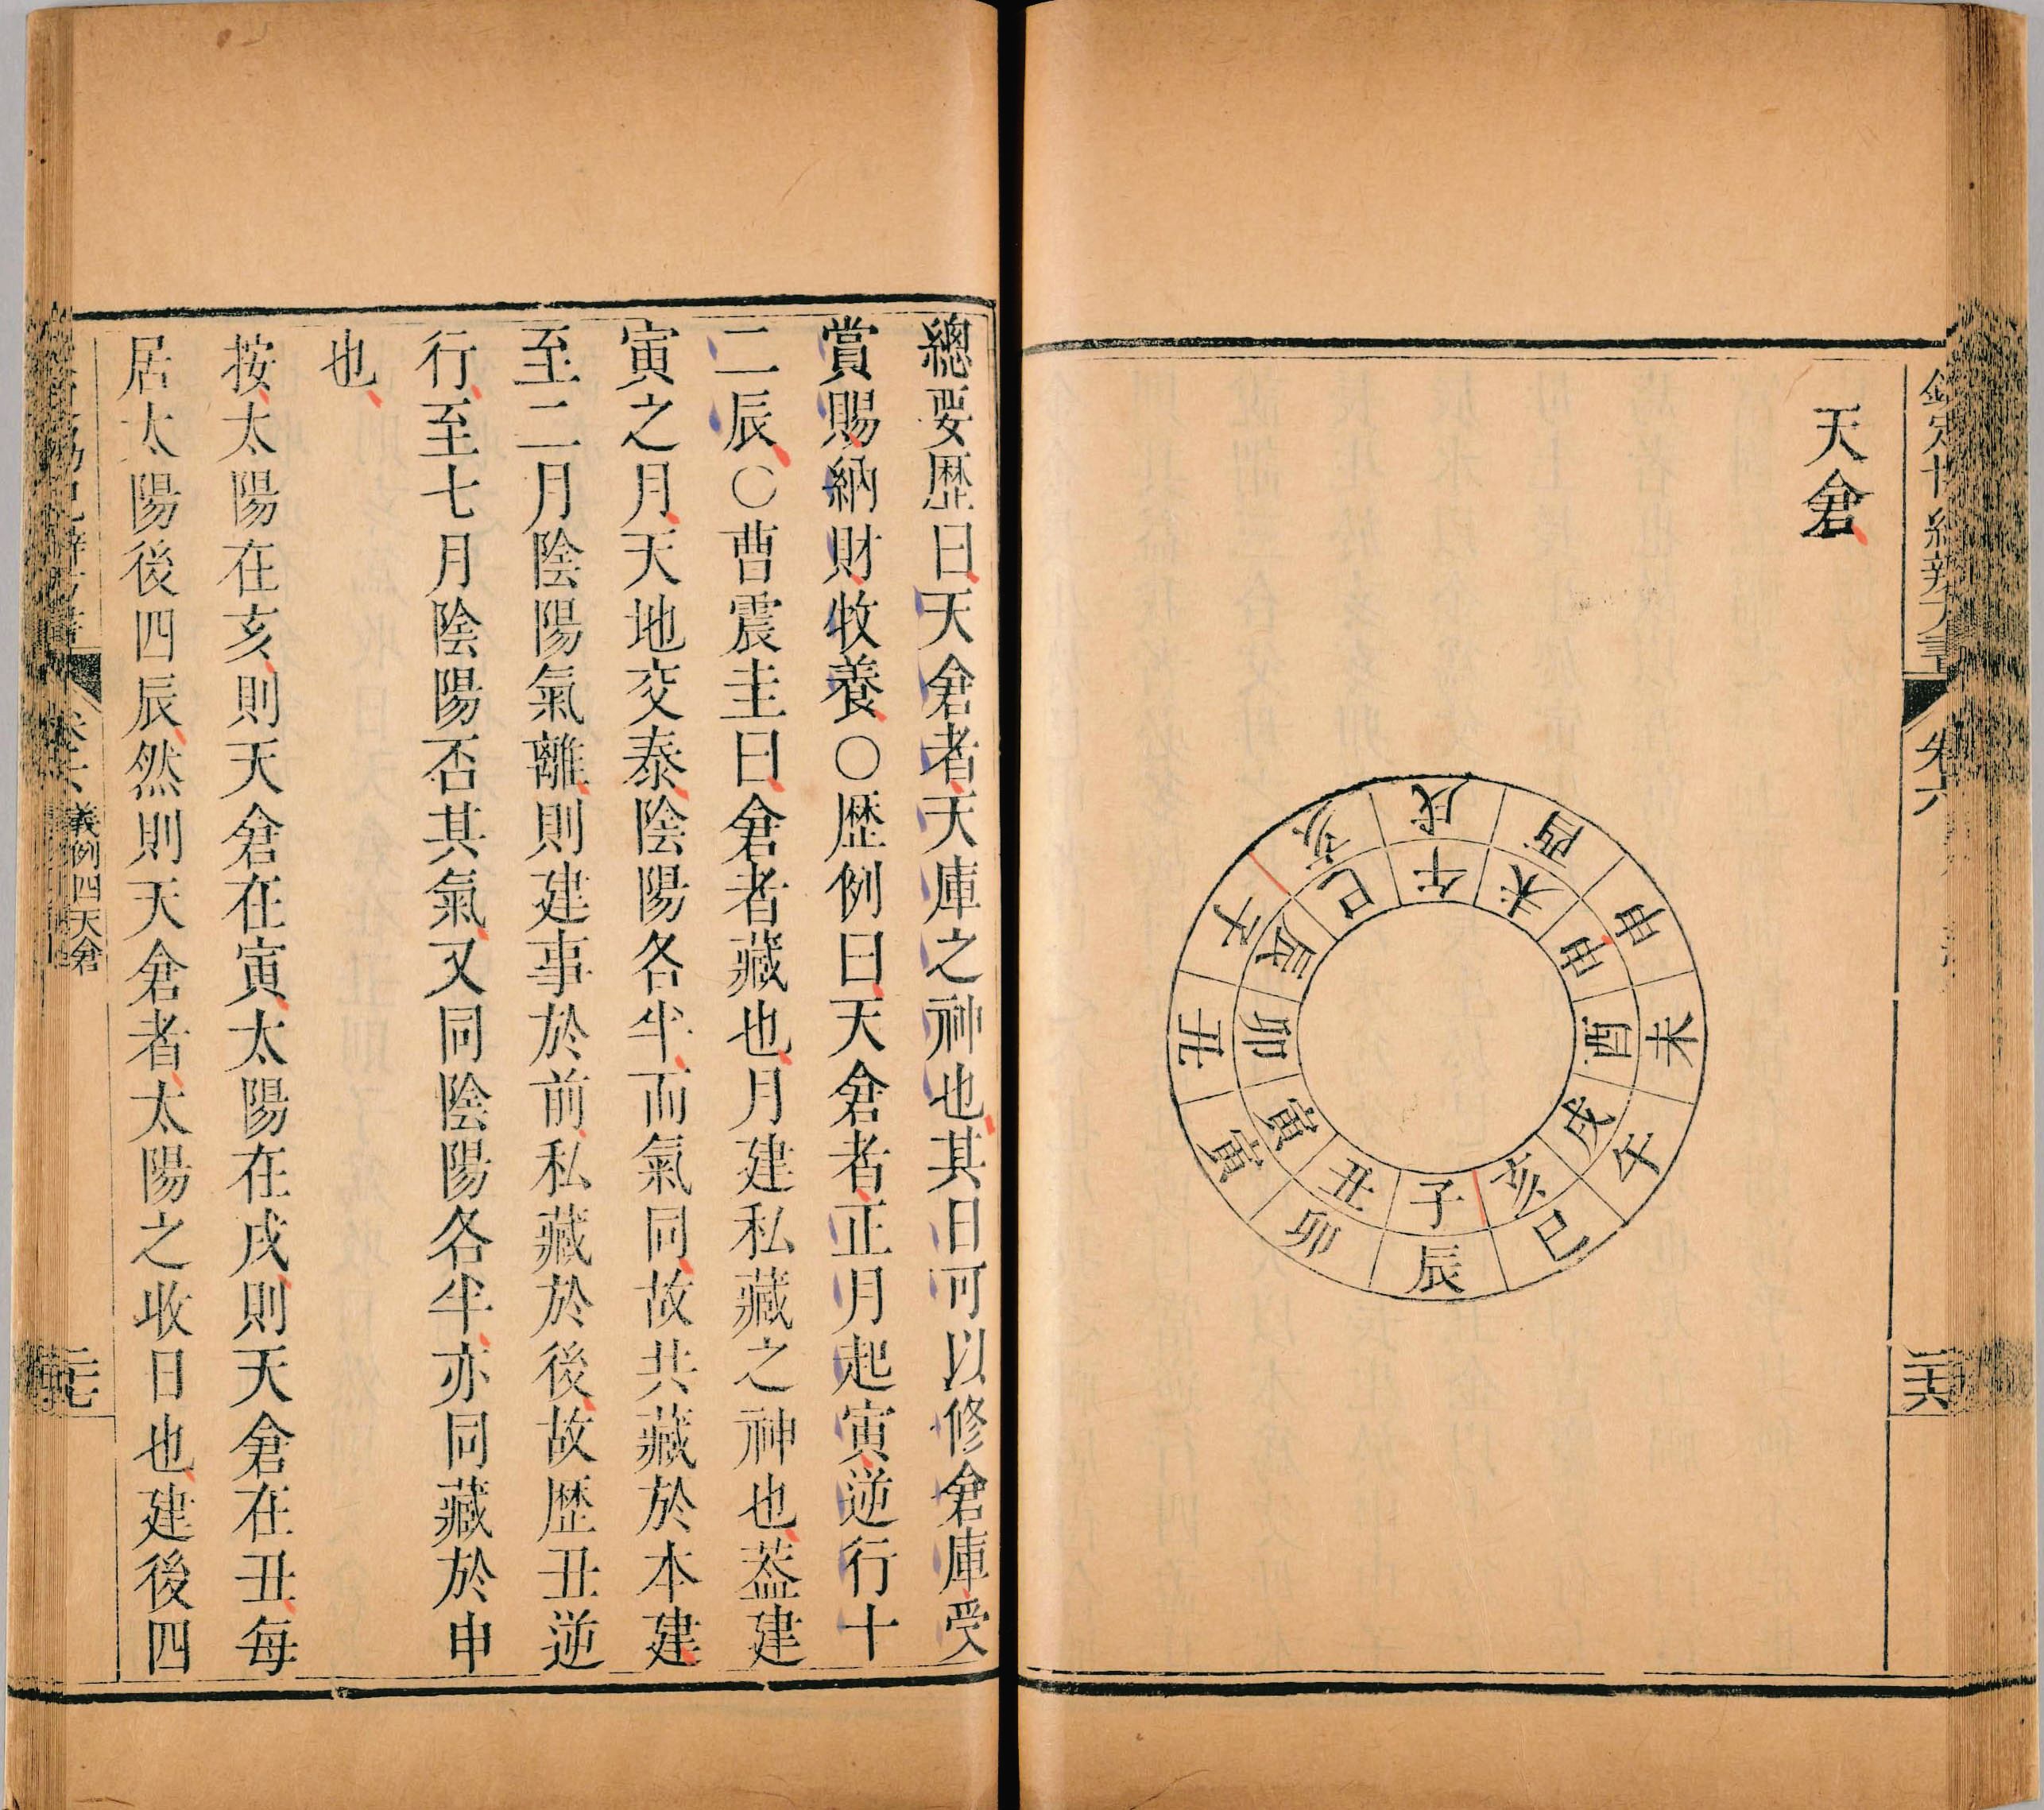 天倉
亥
戌
酉
申
未
午
巳
辰
卯
寅
丑
子
巳
午
未
申
酉
戌
亥
子
丑
寅
卯
辰
卷六
二十六
總要歴曰天倉者天庫之神也其日可以修倉庫受
賞賜納財牧養○歴例曰天倉者正月起寅逆行十
二辰○曹震圭曰倉者藏也月建私藏之神也葢建
寅之月天地交泰陰陽各半而氣同故共藏於本建
至二月陰陽氣離則建事於前私藏於後故歴丑逆
行至七月陰陽否其氣又同陰陽各半亦同藏於申
也
按太陽在亥則天倉在寅太陽在戌則天倉在丑每
居太陽後四辰然則天倉者太陽之收日也建後四
義例四天倉
二十七